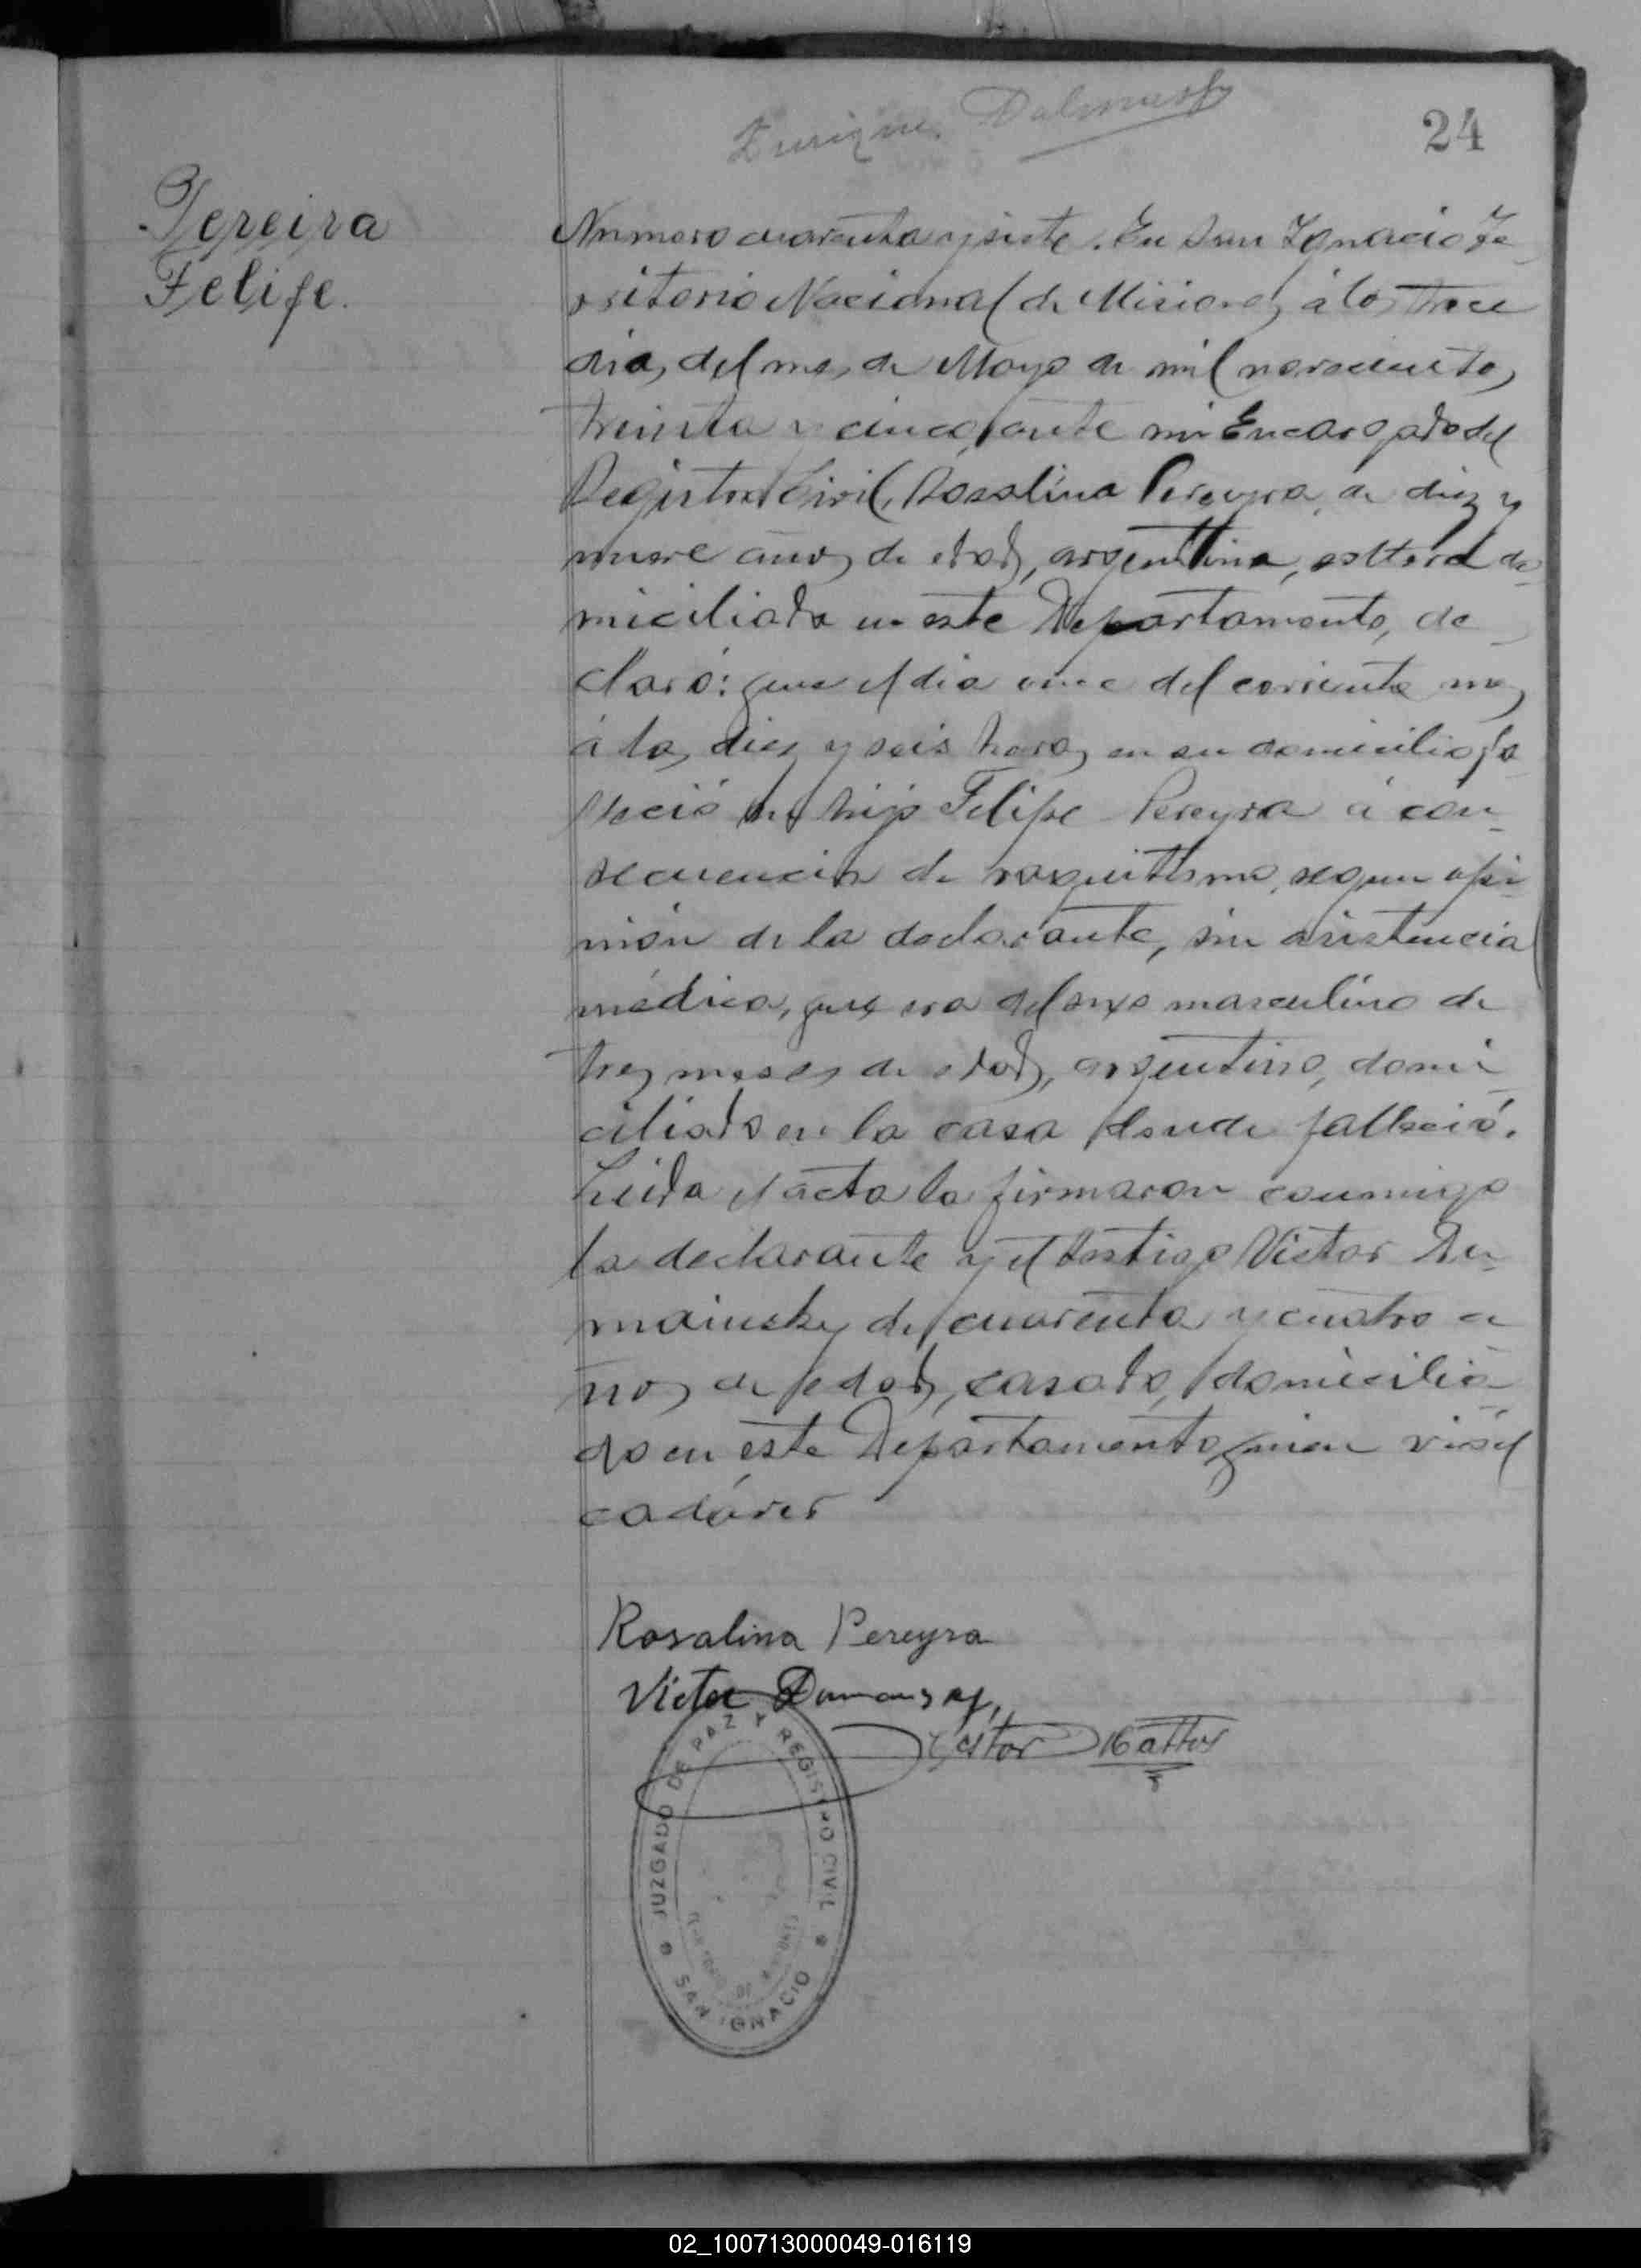 Enrique Dalmasf
24
Pereira
Felife.
Numero cuarenta y siete. En San Ignacio Te-
rritorio Nacional de Misiones á los trece
dias del mes de Mayo de mil novecientos
treinta y cinco, ante mi Encargado del
Registro Civil, Rosalina Pereyra, de diez y
nueve años de edad, argentina, soltera do-
miciliada en este Departamento, de-
claró: que el dia once del corriente mes
á las diez y seis horas en su domicilio fa-
lleció su hijo Felipe Pereyra á con-
secuencia de raquitismo, segun opi-
nión de la declarante, sin asistencia
médica, que era del sexo masculino de
tres meses de edad, argentino, domi-
ciliado en la casa donde falleció.
Leida el acta la firmaron conmigo
la declarante y el testigo Victor Du-
mainsky de cuarenta y cuatro a-
ños de edad, casado, domicilia-
do en este Departamento quien vió el
cadáver
Rosalina Pereyra
Victor
JUZGADO DE PAZ Y REGISTRO CIVIL
SAN IGNACIO
02_100713000049-016119